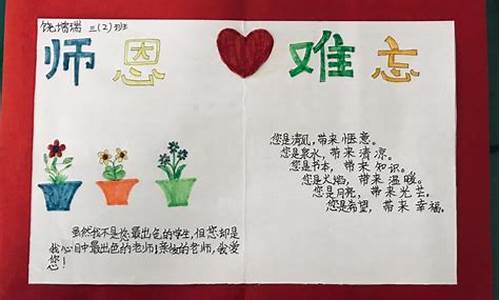 饶增瑞 三(2)班
师恩难忘
您是清风,带来惬意。
您是泉水,带来清凉。
您是书本,带来知识。
您是火焰,带来温暖。
您是月亮,带来光芒。
您是希望,带来幸福。
虽然我不是您最出色的学生,但您却是
我心目中最出色的老师!亲爱的老师,我爱
您!